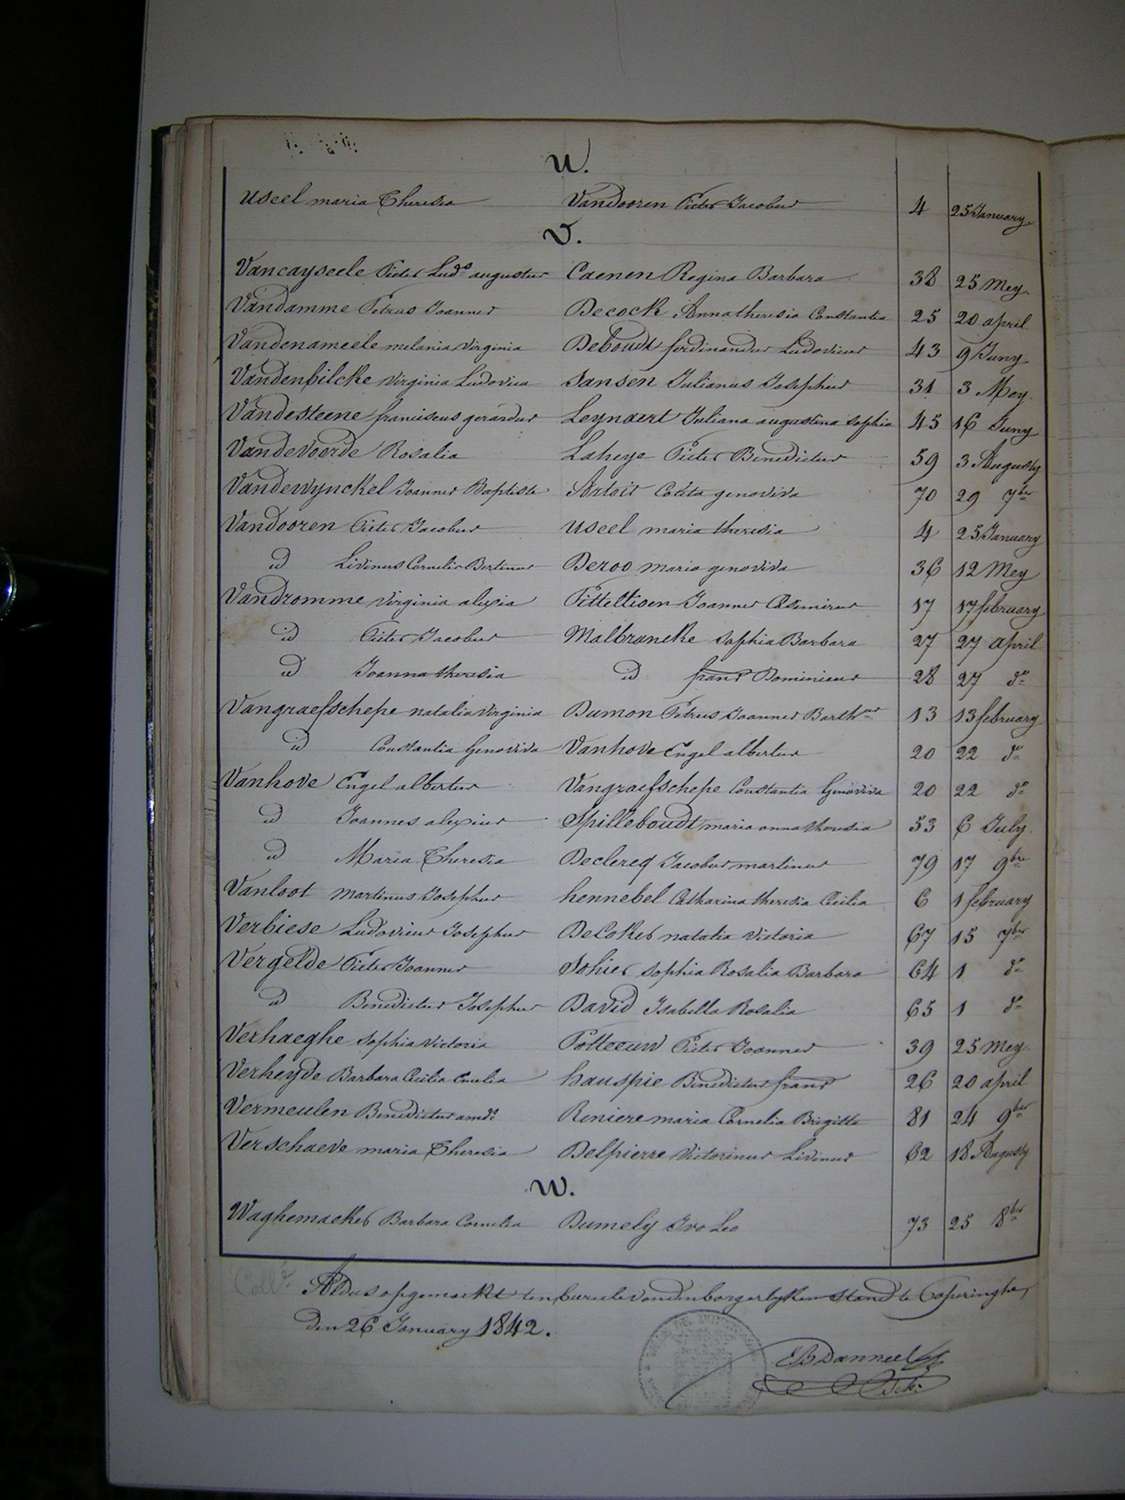 U.
Useel maria Theresia Vandooren Pieter Jacobus 4 25 January
V.
Vancayseele Pieter Lud.s augustus Caenen Regina Barbara 38 25 Mey
Vandamme Petrus Joannes Decock Anna theresia Constantia 25 20 april
Vandenameele melania Virginia Deboudt ferdinandus Ludovicus 43 9 Juny
Vandenbilcke Virginia Ludovica Jansen Julianus Josephus 31 3 Mey
Vandesteene franciscus gerardus Leynaert Juliana augustina sophia 45 16 Juny
Vandevoorde Rosalia Laheye Pieter Benedictus 59 3 Augusty
Vandewynckel Joannes Baptiste Artois Coleta genoviva 70 29 7ber
Vandooren Pieter Jacobus Useel maria theresia 4 25 January
id Livinus Cornelis Bertinus Deroo maria genoviva 36 12 Mey
Vandromme Virginia alexia Pittellioen Joannes Casimirus 17 17 february
id Pieter Jacobus Malbrancke sophia Barbara 27 27 april
id Joanna theresia id frans Dominicus 28 27 do
Vangraefschepe natalia Virginia Dumon Petrus Joannes Barthus 13 13 february
id Constantia Genoviva Vanhove Engel albertus 20 22 do
Vanhove Engel albertus Vangraefschepe Constantia Genoviva 20 22 do
id Joannes alexius Spilleboudt maria anna theresia 53 6 July
id Maria Theresia Declercq Jacobus martinus 79 17 9bre
Vanloot Martinus Josephus hennebel Catharina theresia Cecilia 6 1 february
Verbiese Ludovicus Josephus Decoker natalia Victoria 67 15 7ber
Vergelde Pieter Joannes Sohier sophia Rosalia Barbara 64 1 do
id Benedictus Josephus David Isabella Rosalia 65 1 do
Verhaeghe sophia Victoria Potteeuw Pieter Joannes 39 25 Mey
Verheyde Barbara Cecilia Emelia hauspie Benedictus frans 26 20 april
Vermeulen Benedictus amd: Reniere maria Cornelia Brigitte 81 24 9ber
Verschaeve maria Theresia Delpierre Victorinus Livinus 62 18 Augusty
W.
Waghemacker Barbara Cornelia Dumely Ivo Leo 73 25 8ber
Aldus opgemaekt ten bureele van den borgerlyken stand te Poperinghe,
den 26 January 1842.